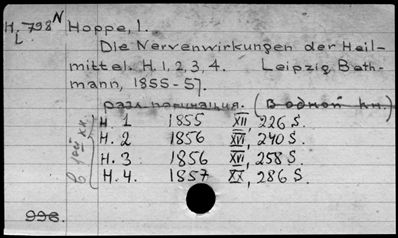 H 798 N Hoppe, I.
L
Die Nervenwirkungen der Heil-
mittel. H. 1, 2, 3, 4. Leipzig, Beth-
mann, 1855-57.
разл. пагинация. (В одной кн.)
H. 1 1855 XII, 226 S.
H. 2 1856 XVI, 240 S.
H. 3 1856 XVI, 258 S.
H. 4. 1857 XX, 286 S.
996.